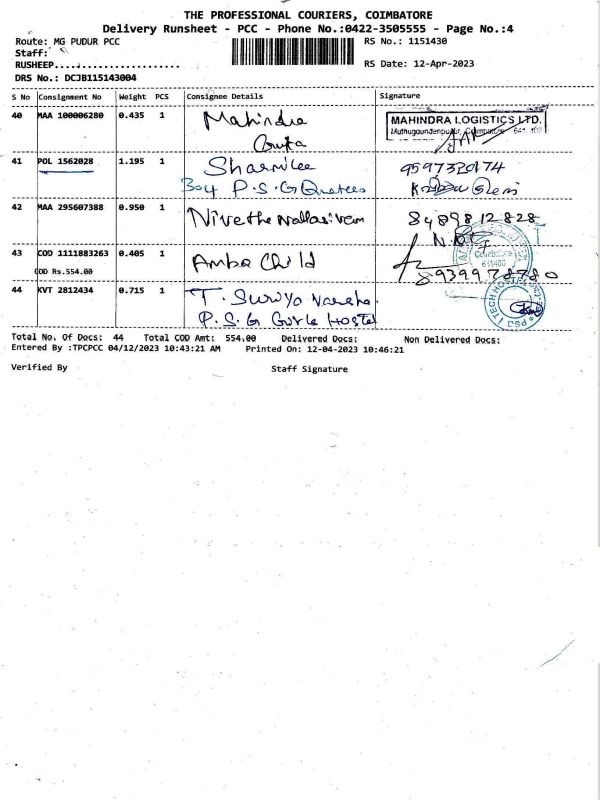 THE PROFESSIONAL COURIERS, COIMBATORE
Delivery Runsheet - PCC - Phone No.:0422-3505555 - Page No.:4
Route: MG PUDUR PCC
RS No.: 1151430
Staff:
RUSHEEP......................
RS Date: 12-Apr-2023
DRS No.: DCJB115143004
S No Consignment No Weight PCS Consignee Details Signature
40 MAA 100006280 0.435 1 Mahindra
MAHINDRA LOGISTICS LTD.
41 POL 1562028 1.195 1 Sharmilee 9597320174
Boy P.S.G Quatees
42 MAA 295607388 0.950 1 Nivethe Nallasivam 8489812828
43 COD 1111883263 0.405 1 Amba Child
COD Rs.554.00
8939978780
44 KVT 2812434 0.715 1 T. Suriya Varsha
P.S.G Gurls Hostel
Total No. Of Docs: 44 Total COD Amt: 554.00 Delivered Docs: Non Delivered Docs:
Entered By :TPCPCC 04/12/2023 10:43:21 AM Printed On: 12-04-2023 10:46:21
Verified By Staff Signature